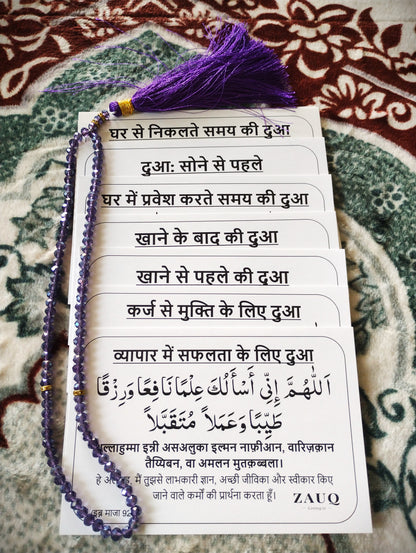 घर से निकलते समय की दुआ
दुआ: सोने से पहले
घर में प्रवेश करते समय की दुआ
खाने के बाद की दुआ
खाने से पहले की दुआ
कर्ज से मुक्ति के लिए दुआ
व्यापार में सफलता के लिए दुआ
اَللّٰهُمَّ إِنِّي أَسْأَلُكَ عِلْمًا نَافِعًا وَرِزْقًا
طَيِّبًا وَعَمَلاً مُتَقَبَّلاً
इन्नी असअलुका इल्मन नाफ़ीआन, वारिज़कान
तैय्यिबन, वा अमलन मुतक़ब्बला।
हे मैं तुझसे लाभकारी ज्ञान, अच्छी जीविका और स्वीकार किए
जाने वाले कर्मों की प्रार्थना करता हूँ।
ZAUQ
माजा